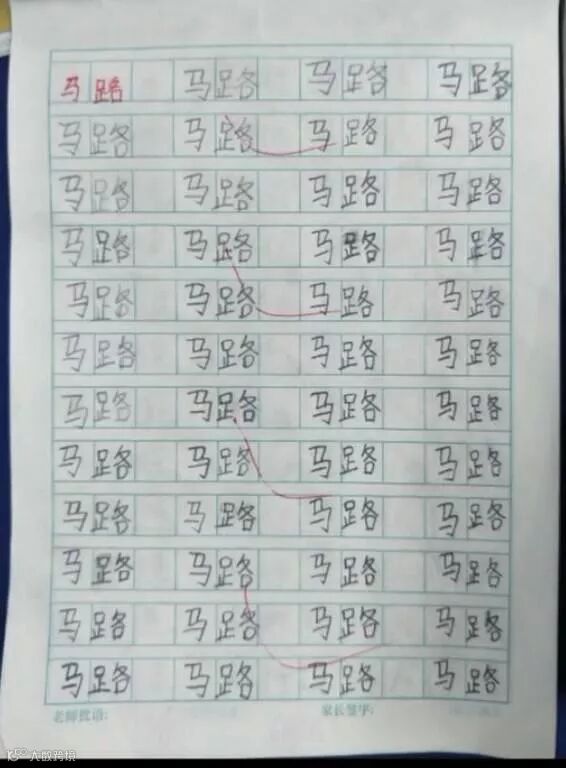 马路 马路 马路 马路
马路 马路 马路 马路
马路 马路 马路 马路
马路 马路 马路 马路
马路 马路 马路 马路
马路 马路 马路 马路
马路 马路 马路 马路
马路 马路 马路 马路
马路 马路 马路 马路
马路 马路 马路 马路
马路 马路 马路 马路
马路 马路 马路 马路
老师批语: 家长签字:
大数跨境